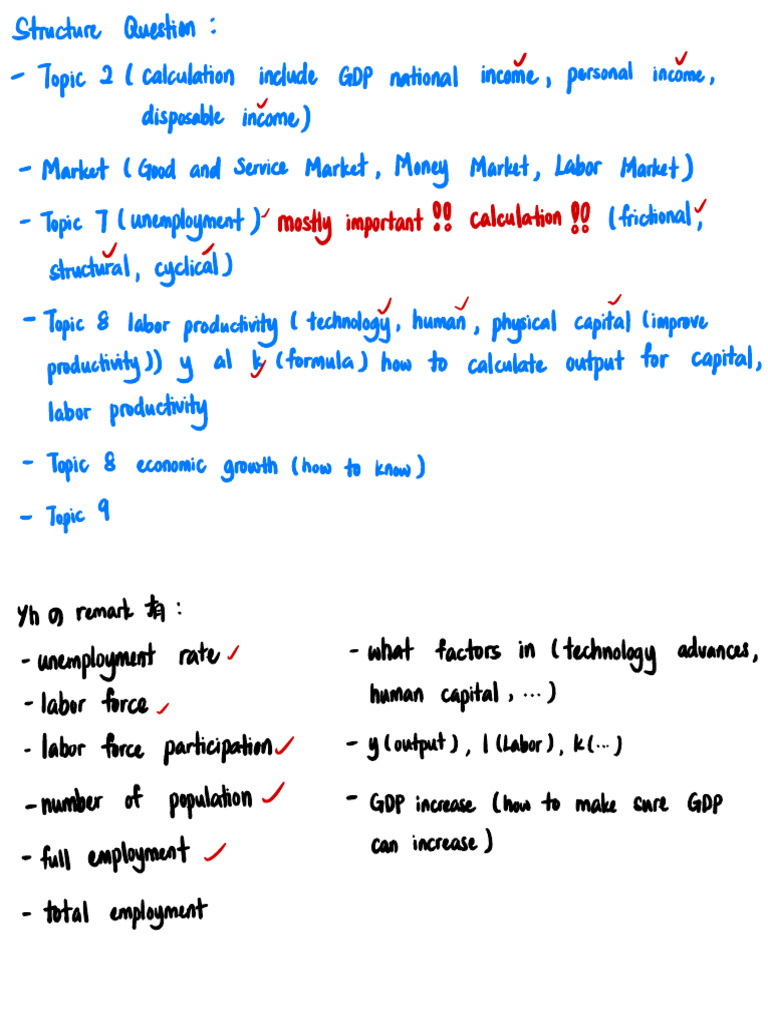 Structure Question :
- Topic 2 ( calculation include GDP national income, personal income,
disposable income)
- Market (Good and Service Market, Money Market, Labor Market)
- Topic 7 (unemployment) mostly important !! calculation !! (frictional,
structural, cyclical)
- Topic 8 labor productivity (technology, human, physical capital (improve
productivity)) y al k (formula) how to calculate output for capital,
labor productivity
- Topic 8 economic growth (how to know)
- Topic 9
Yh の remark 有 :
- unemployment rate
- labor force
- labor force participation
- number of population
- full employment
- total employment
- what factors in (technology advances,
human capital, ...)
- y(output), l(Labor), k(...)
- GDP increase (how to make sure GDP
can increase)